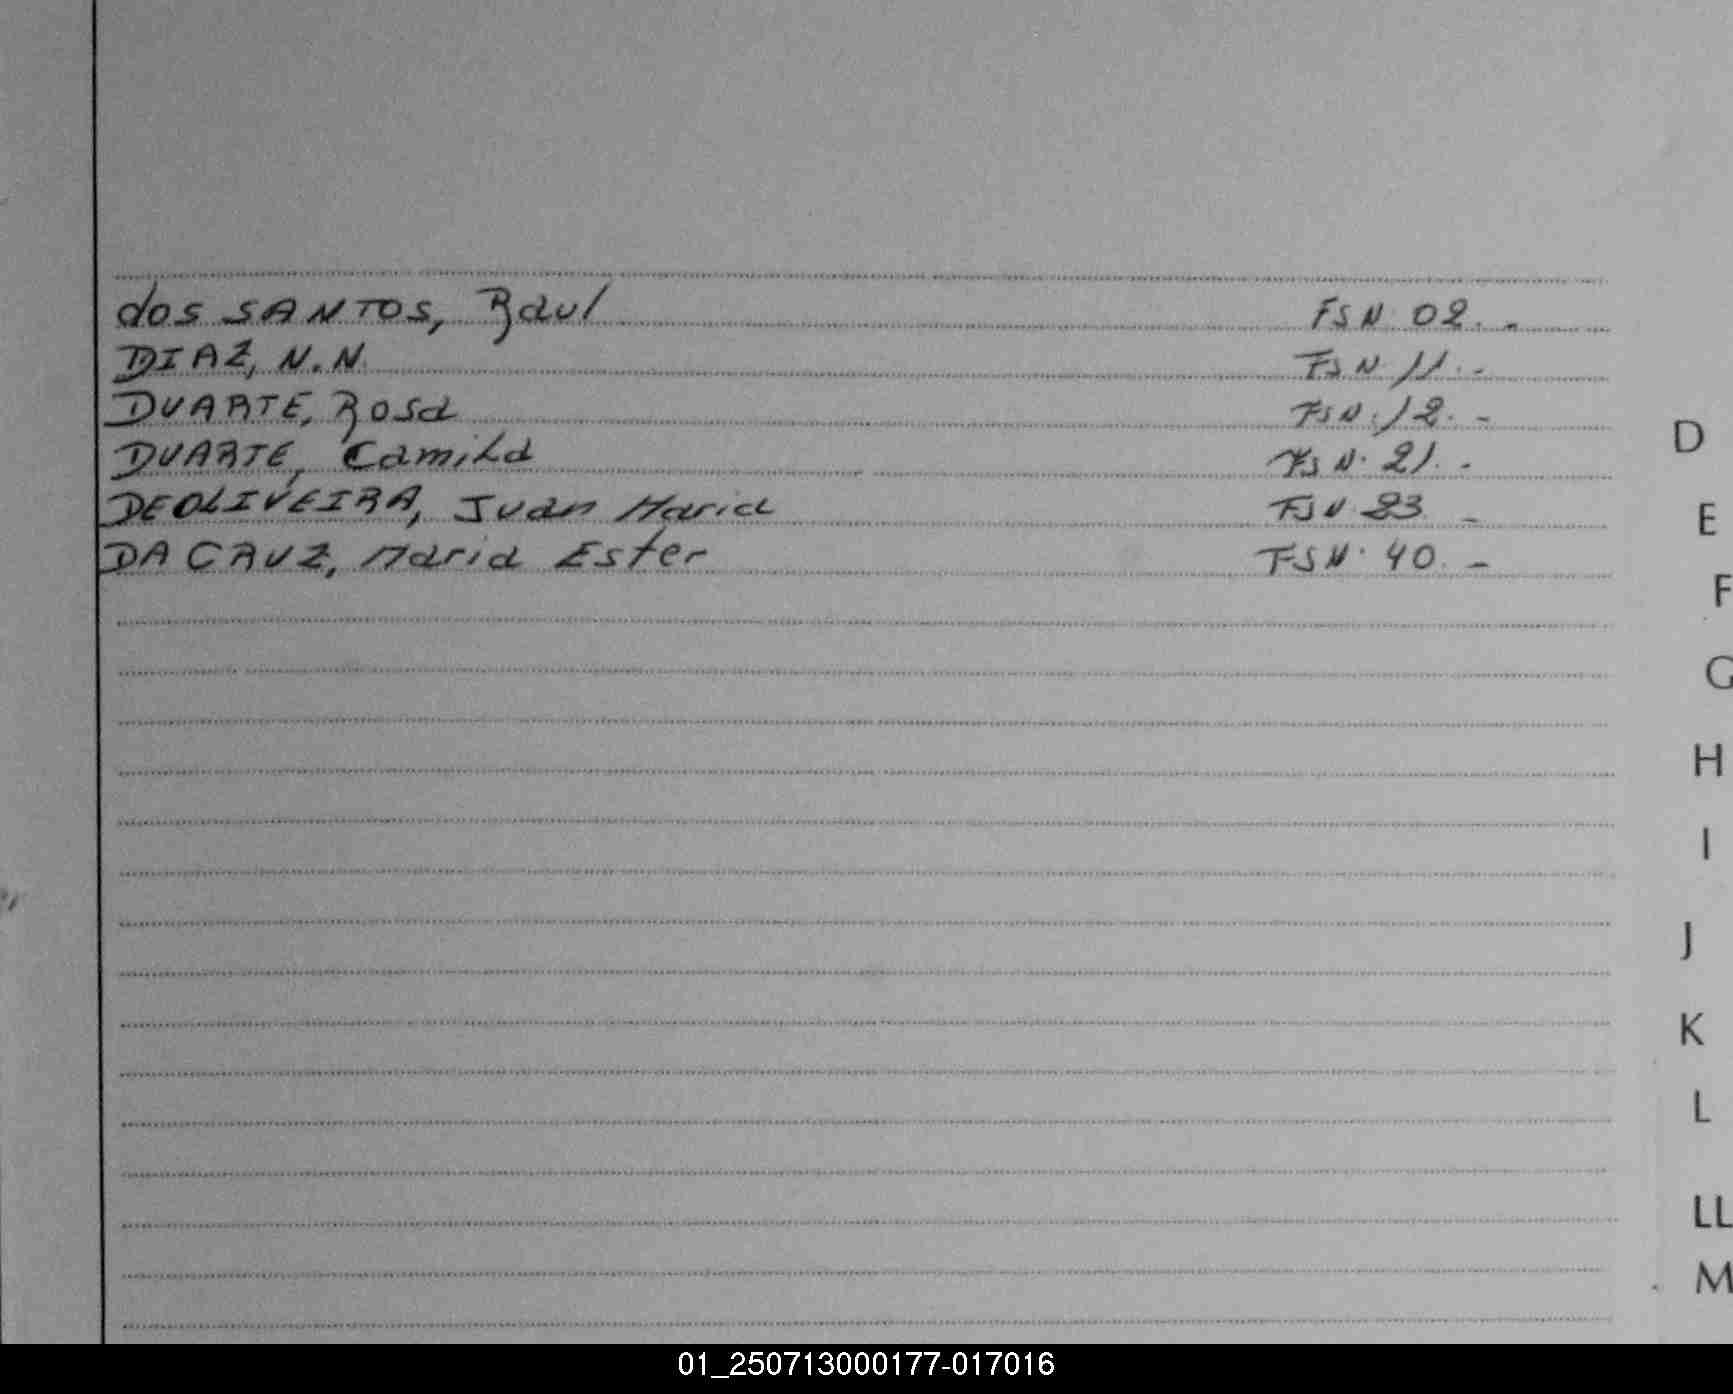 dos SANTOS, Raul FSN. 02. -
DIAZ, N.N. FSN. 11. -
DUARTE, Rosa FSN. 12. -
DUARTE, Camila FSN. 21. -
DEOLIVEIRA, Juan Maria FSN. 23. -
DA CRUZ, Maria Ester FSN. 40. -
D
E
F
G
H
I
J
K
L
LL
M
01_250713000177-017016